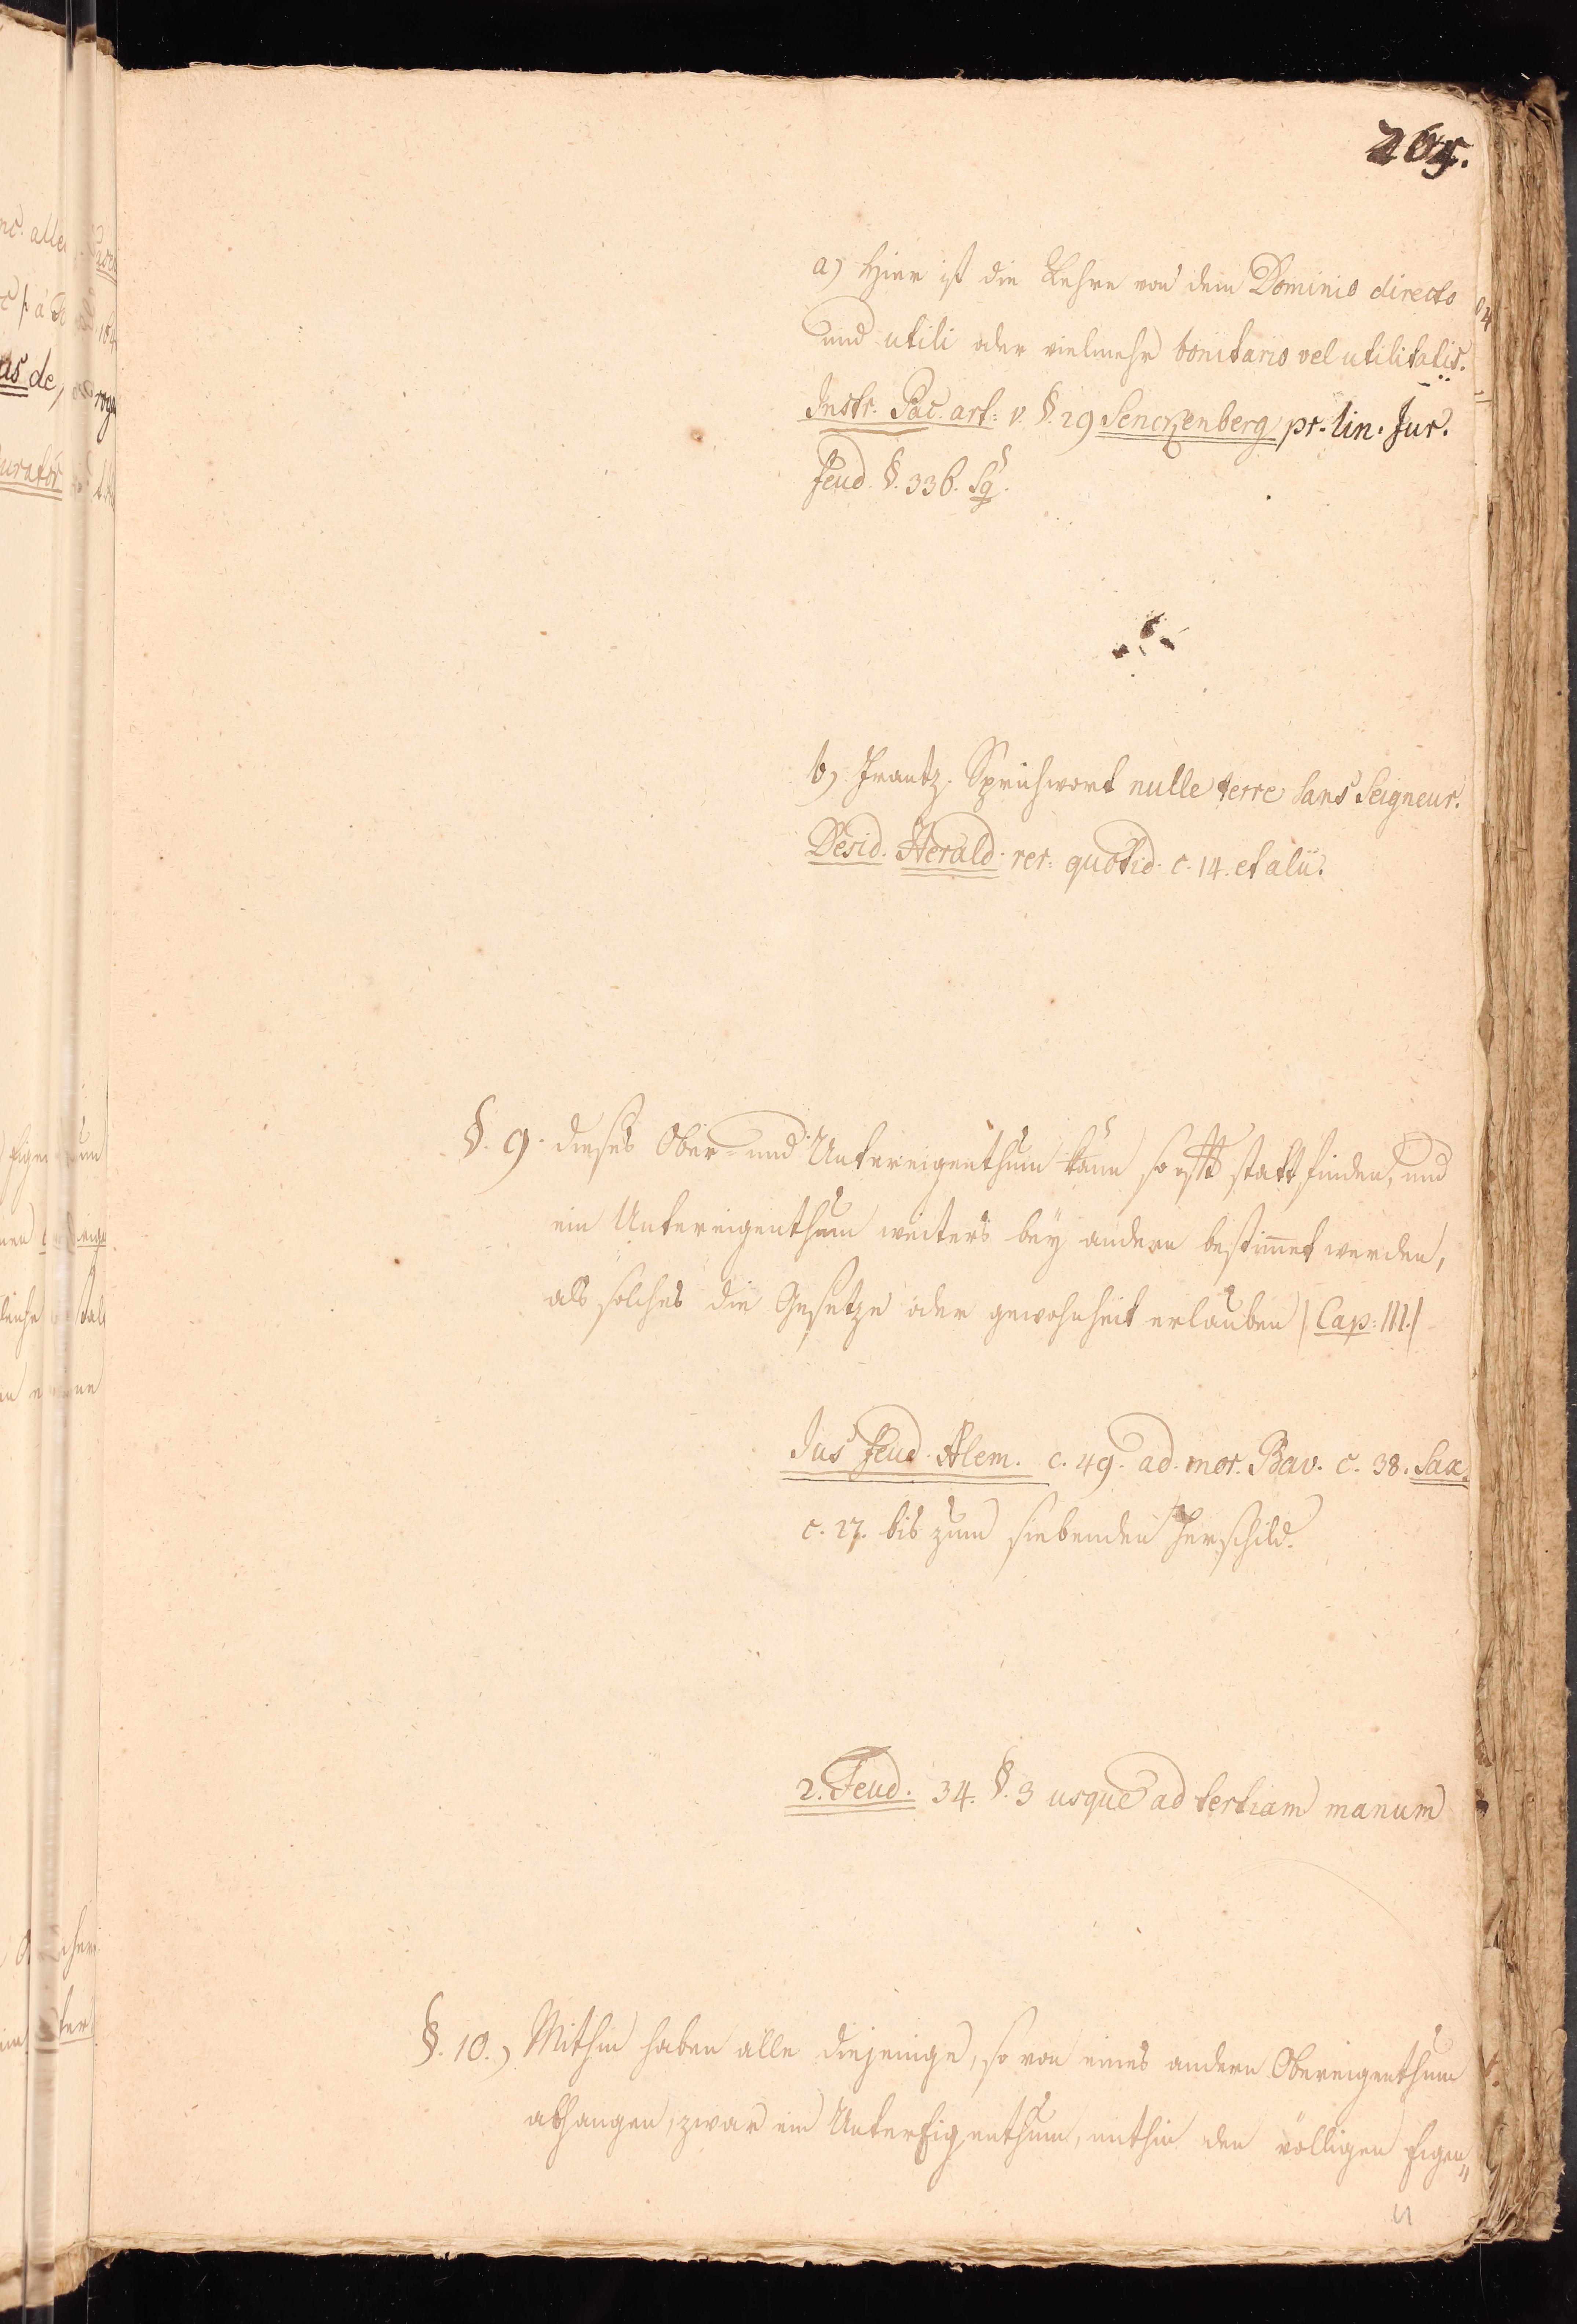 265.
a) Hier ist die Lehre von dem Dominio directo
und utili oder vielmehr bonitario vel utilitatis.
Instr. Pac. art: v. §. 29 Senckenberg pr. lin. Jur.
feud. §. 336. sq.
b) Frantz. Sprichwort nulle terre sans Seigneur.
Desid. Herald. rer: quotid. c. 14. et alii.
§. 9. dieses Ober- und Untereigenthum kann so offt statt finden, und
ein Untereigenthum weiters bey andern bestimmet werden,
als solches die Gesetze oder gewohnheit erlauben |Cap: III.|
Jus feud. Alem. c. 49. ad. mor. Bav. c. 38. Sax.
c. 27. bis zum siebenden Herschild.
2. Feud. 34. §. 3 usque ad tertiam manum
§. 10.) Mithin haben alle diejenige, so von eines andern Obereigenthum
abhangen, zwar ein UnterEigenthum, mithin den völligen Eigen„